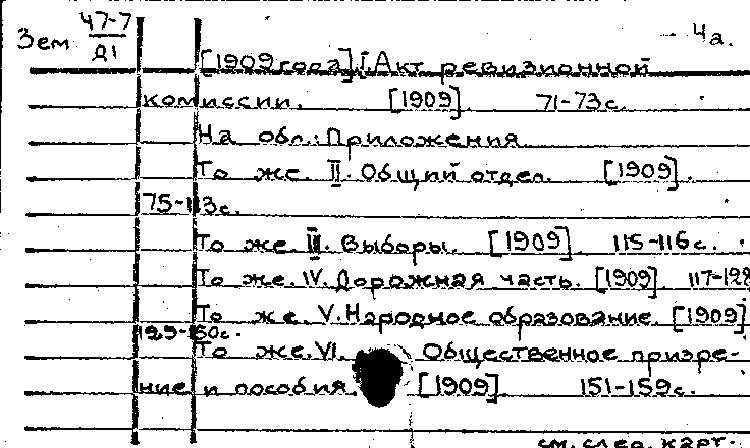 Зем 47-7 - 4а.
Д1
[1909 года] I. Акт ревизионной
комиссии. [1909] 71-73 с.
На обл.: Приложения
То же. II. Общий отдел. [1909].
75-113 с.
То же. III. Выборы. [1909] 115-116 с.
То же. IV. Дорожная часть. [1909] 117-128
То же. V. Народное образование. [1909]
129-150 с.
То же. VI. Общественное призре-
ние и пособия. [1909] 151-159 с.
см. след. карт.